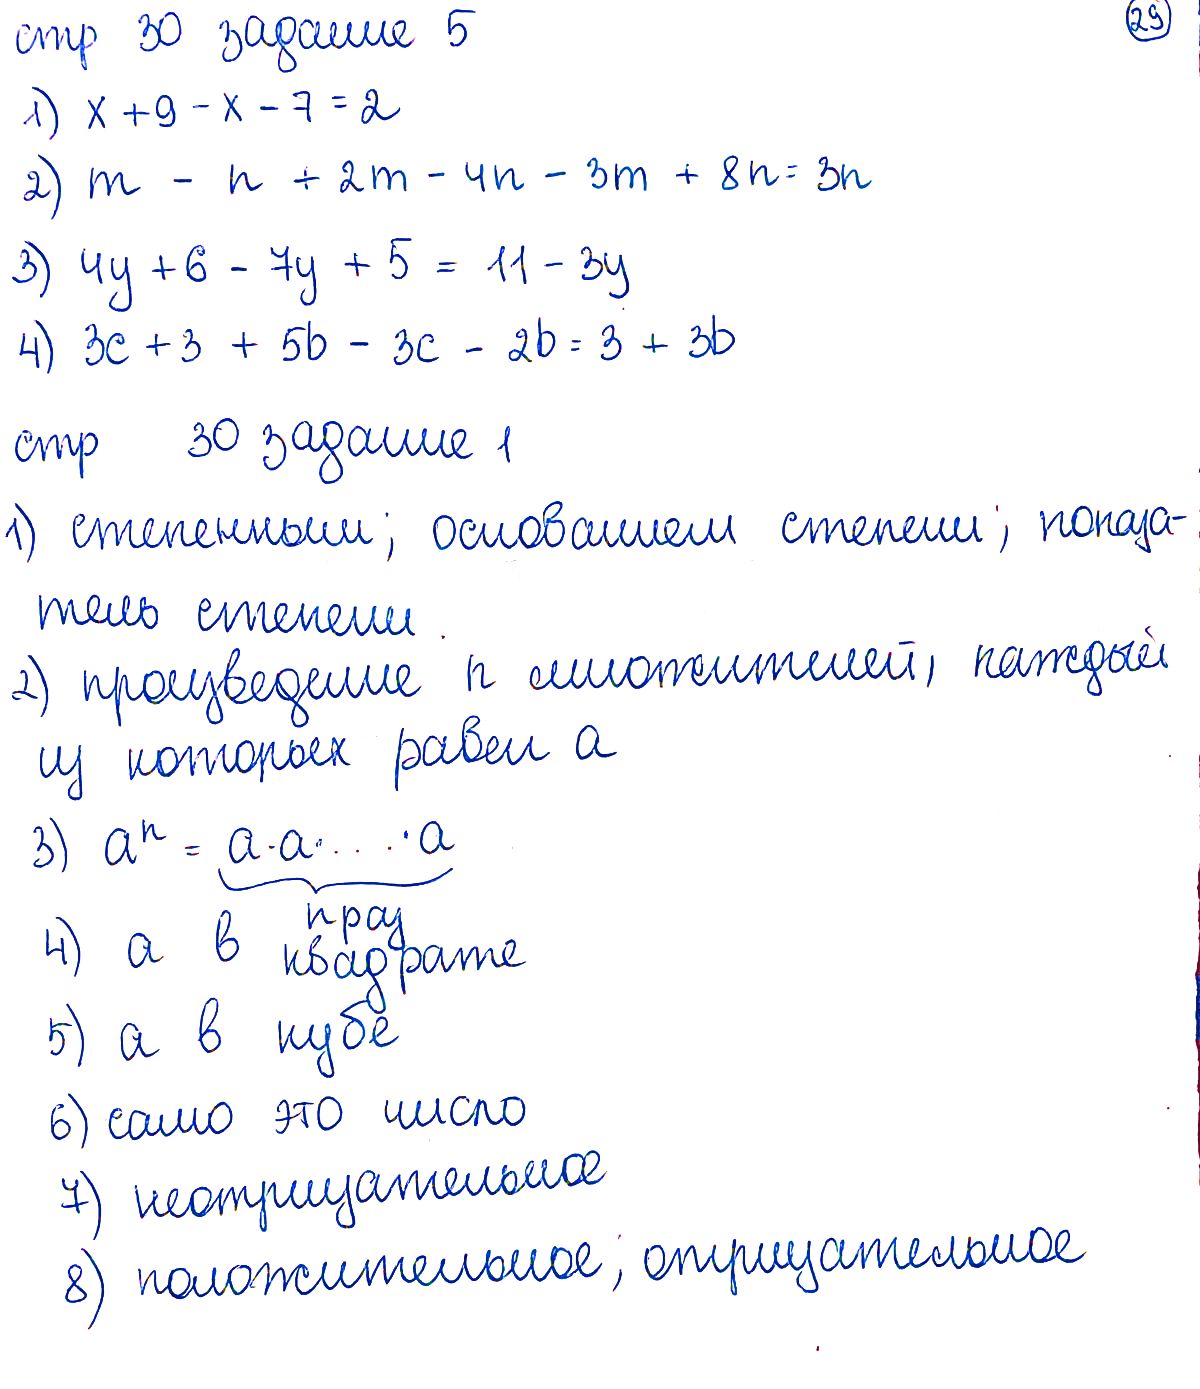 стр 30 задание 5
29
1) x + 9 - x - 7 = 2
2) m - n + 2m - 4n - 3m + 8n = 3n
3) 4y + 6 - 7y + 5 = 11 - 3y
4) 3c + 3 + 5b - 3c - 2b = 3 + 3b
стр 30 задание 1
1) степенным; основанием степени; показа-
тель степени
2) произведение n множителей, каждый
из которых равен a
3) aⁿ = a·a· ... ·a
n раз
4) a в квадрате
5) a в кубе
6) само это число
7) неотрицательное
8) положительное; отрицательное